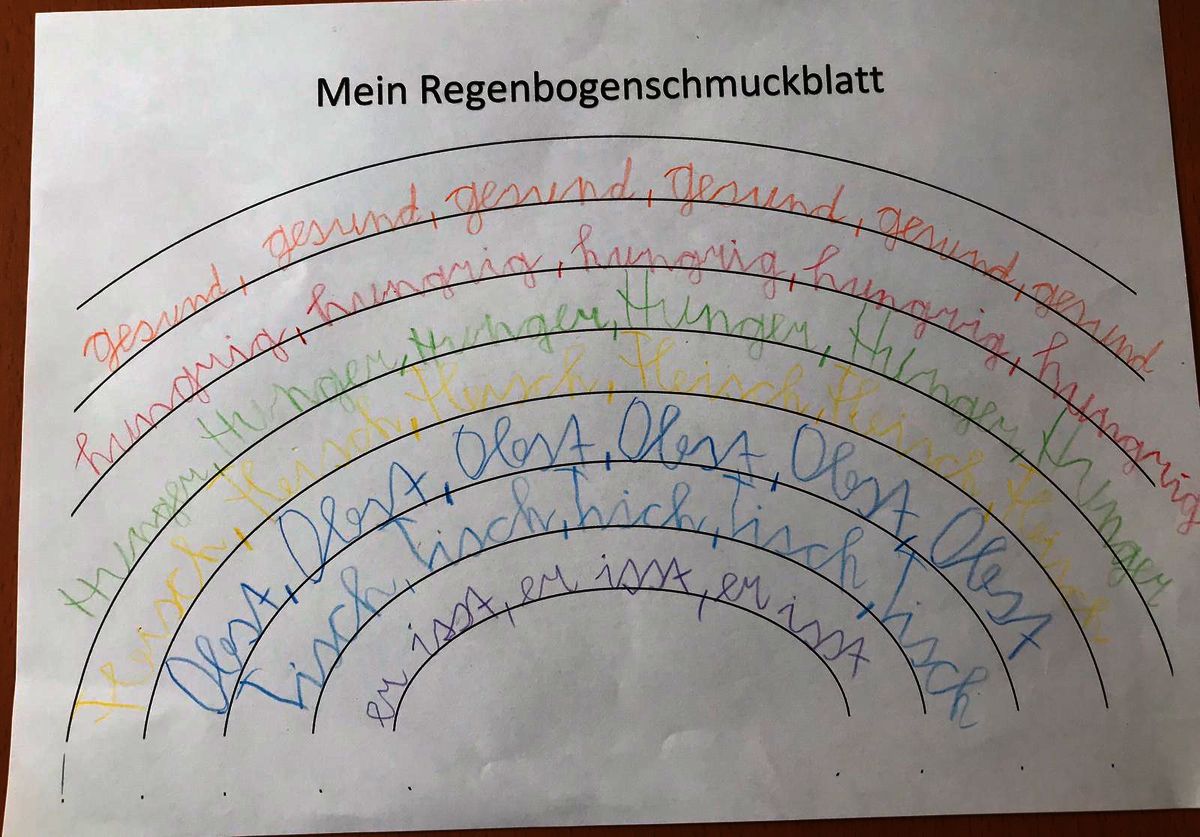 Mein Regenbogenschmuckblatt
gesund, gesund, gesund, gesund, gesund, gesund
hungrig, hungrig, hungrig, hungrig, hungrig
Hunger, Hunger, Hunger, Hunger, Hunger, Hunger
Fleisch, Fleisch, Fleisch, Fleisch, Fleisch, Fleisch
Obst, Obst, Obst, Obst, Obst, Obst
Tisch, Tisch, Tisch, Tisch, Tisch
er isst, er isst, er isst